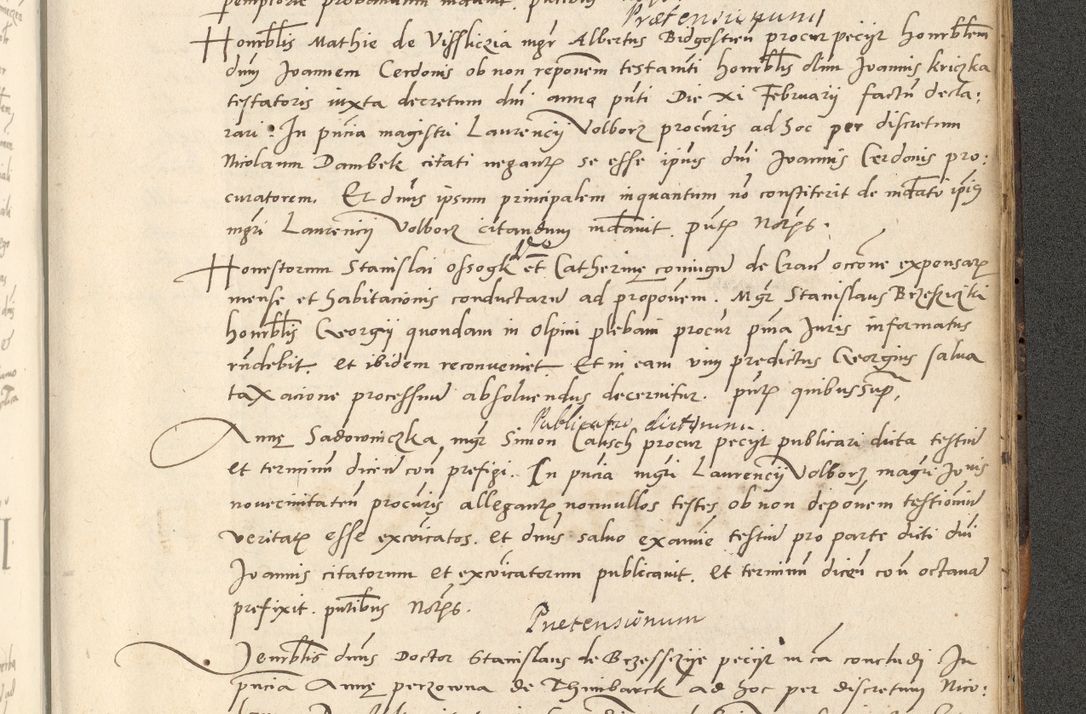 Pretensionum
Honrblis Mathie de Vissliczia mgr Albertus Bidgostien procur pecijt honrblem
dnm Joannem Cerdonis ob non reponem testamti honrblis olim Joannis kriczka
testatoris iuxta decretum dni anno pnti Die xi Februarij factu decla:
rari: In pncia magistri Laurencij Volborz procuris ad hoc per discretum
Nicolaum Dambek citati negantis se esse ipius dni Joannis Cerdonis pro:
curatorem. Et dnus ipsum principalem inquantum no constiterit de mdato ipius
mgri Laurencij Volborz citandum mdauit. pntibus Notrijs.
Honestorum Stanislai Ossogk et Catherine coniugum de Crac occone expensarum
mense et habitacionis conductarum ad proponem. Mgr Stanislaus Brzeziczki
honrblis Georgij quondam in Olpini plebani procur pma Juris informatus
rndebit. et ibidem reconueniet Et in eam vim predictus Georgius salua
taxacione processuum absoluendus decernitur. pntibus quibus supra.
Publicatur dictorum
Anne Sadowniczka mgr Simon Calisch procur pecijt publicari dicta testium
et terminum dicend con prefigi. In pncia mgri Laurencij Volborz magri Jonis
nouecinitaten procuris allegantis nonnullos testes ob non deponem testimonium
veritatis esse excoicatos. et dnus saluo examine testium pro parte dicti dni
Joannis citatorum et excoicatorum publicauit. et terminum dicen con octauam
prefixit. pntibus Notrijs.
Pretensionum
Venrblis dnus Doctor Stanislaus de Brzesszije pecijt in ca concludi In
pncia Anne peczowna de Thimbarck ad hoc per discretum Nico: